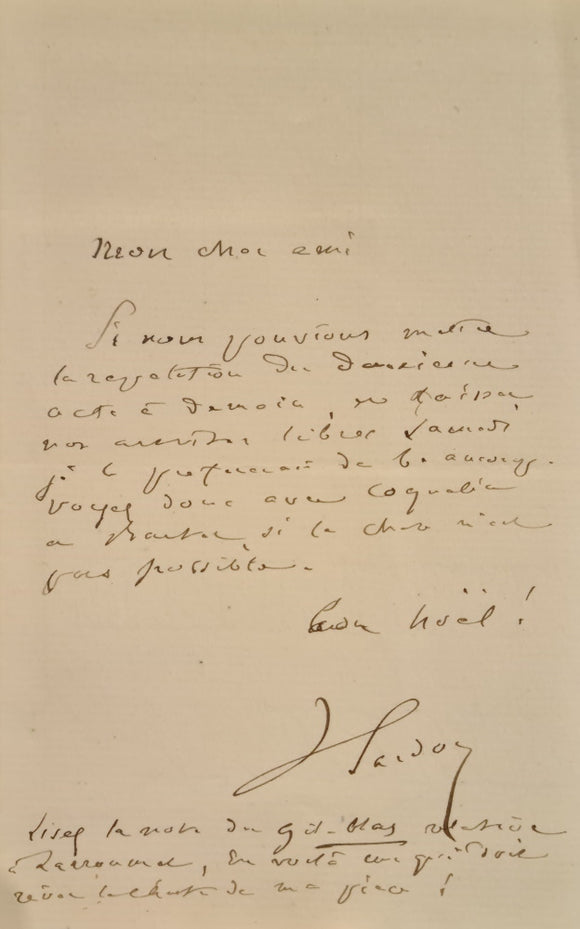 Mon cher ami
Si nous pouvions mettre
la repetition du dernier
acte à demain, et laisser
nos artistes libres samedi
je le prefererais de beaucoup.
Voyez donc avec Coquelin
et si la chose n'est
pas possible.
Bon Noël !
V Sardou
Lisez la note du Gil-Blas relative
à Larroumet, En voilà un qui doit
rêver la chute de ma pièce !